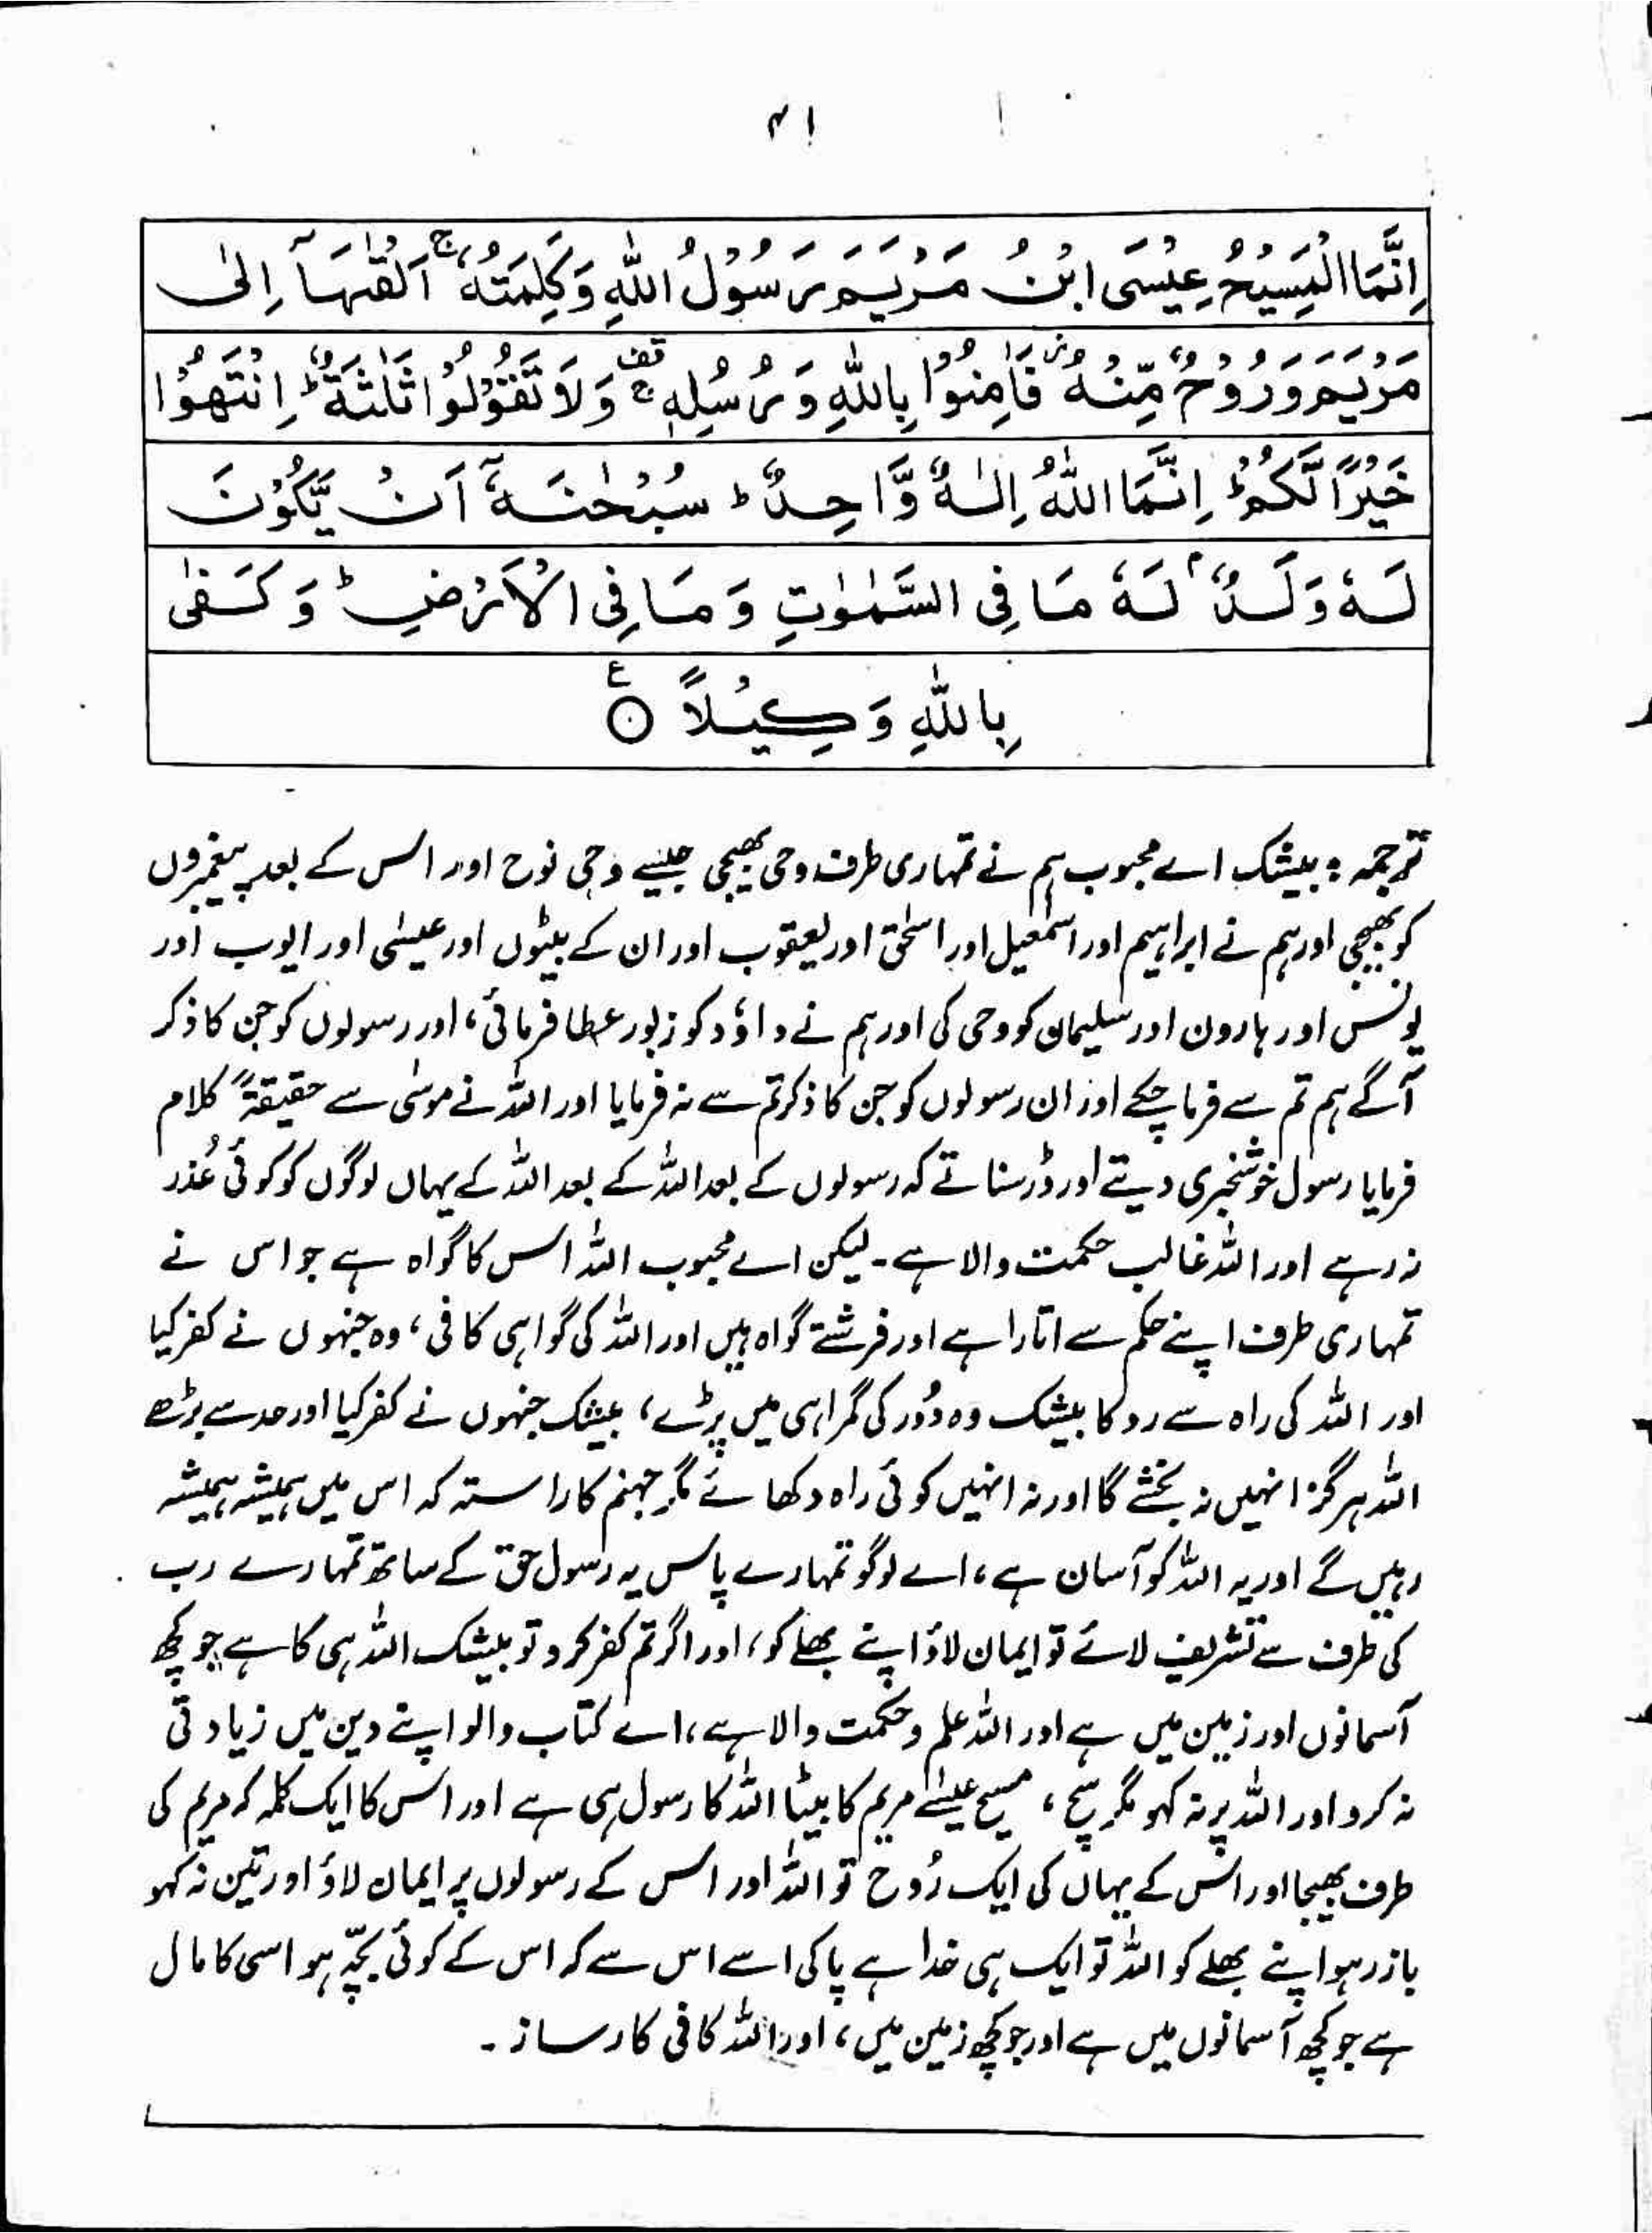 ۴۱
اِنَّمَا الْمَسِيْحُ عِيْسَى ابْنُ مَرْيَمَ رَسُوْلُ اللّٰهِ وَكَلِمَتُهٗ ۚ اَلْقٰىهَاۤ اِلٰى
مَرْيَمَ وَرُوْحٌ مِّنْهُ ۫ فَاٰمِنُوْا بِاللّٰهِ وَرُسُلِهٖ ۚ قف وَلَا تَقُوْلُوْا ثَلٰثَةٌ ؕ اِنْتَهُوْا
خَيْرًا لَّكُمْ ؕ اِنَّمَا اللّٰهُ اِلٰهٌ وَّاحِدٌ ؕ سُبْحٰنَهٗۤ اَنْ يَّكُوْنَ
لَهٗ وَلَدٌ ۘ لَهٗ مَا فِى السَّمٰوٰتِ وَمَا فِى الْاَرْضِ ؕ وَكَفٰى
بِاللّٰهِ وَكِيْلًا ۝ ع
ترجمہ : بیشک اے محبوب ہم نے تمہاری طرف وحی بھیجی جیسے وحی نوح اور اس کے بعد پیغمبروں
کو بھیجی اور ہم نے ابراہیم اور اسمٰعیل اور اسحٰق اور یعقوب اور ان کے بیٹوں اور عیسٰی اور ایوب اور
یونس اور ہارون اور سلیمان کو وحی کی اور ہم نے داؤد کو زبور عطا فرمائی، اور رسولوں کو جن کا ذکر
آگے ہم تم سے فرما چکے اور ان رسولوں کو جن کا ذکر تم سے نہ فرمایا اور اللہ نے موسٰی سے حقیقۃً کلام
فرمایا رسول خوشخبری دیتے اور ڈر سناتے کہ رسولوں کے بعد اللہ کے بعد اللہ کے یہاں لوگوں کو کوئی عُذر
نہ رہے اور اللہ غالب حکمت والا ہے۔ لیکن اے محبوب اللہ اس کا گواہ ہے جو اس نے
تمہاری طرف اپنے حکم سے اتارا ہے اور فرشتے گواہ ہیں اور اللہ کی گواہی کافی، وہ جنہوں نے کفر کیا
اور اللہ کی راہ سے روکا بیشک وہ دُور کی گمراہی میں پڑے، بیشک جنہوں نے کفر کیا اور حد سے بڑھے
اللہ ہرگز انہیں نہ بخشے گا اور نہ انہیں کوئی راہ دکھائے مگر جہنم کا راستہ کہ اس میں ہمیشہ ہمیشہ
رہیں گے اور یہ اللہ کو آسان ہے، اے لوگو تمہارے پاس یہ رسول حق کے ساتھ تمہارے رب
کی طرف سے تشریف لائے تو ایمان لاؤ اپنے بھلے کو، اور اگر تم کفر کرو تو بیشک اللہ ہی کا ہے جو کچھ
آسمانوں اور زمین میں ہے اور اللہ علم و حکمت والا ہے، اے کتاب والو اپنے دین میں زیادتی
نہ کرو اور اللہ پر نہ کہو مگر سچ، مسیح عیسٰے مریم کا بیٹا اللہ کا رسول ہی ہے اور اس کا ایک کلمہ کہ مریم کی
طرف بھیجا اور اس کے یہاں کی ایک رُوح تو اللہ اور اس کے رسولوں پر ایمان لاؤ اور تین نہ کہو
باز رہو اپنے بھلے کو اللہ تو ایک ہی خدا ہے پاکی اسے اس سے کہ اس کے کوئی بچّہ ہو اسی کا مال
ہے جو کچھ آسمانوں میں ہے اور جو کچھ زمین میں، اور اللہ کافی کارساز۔